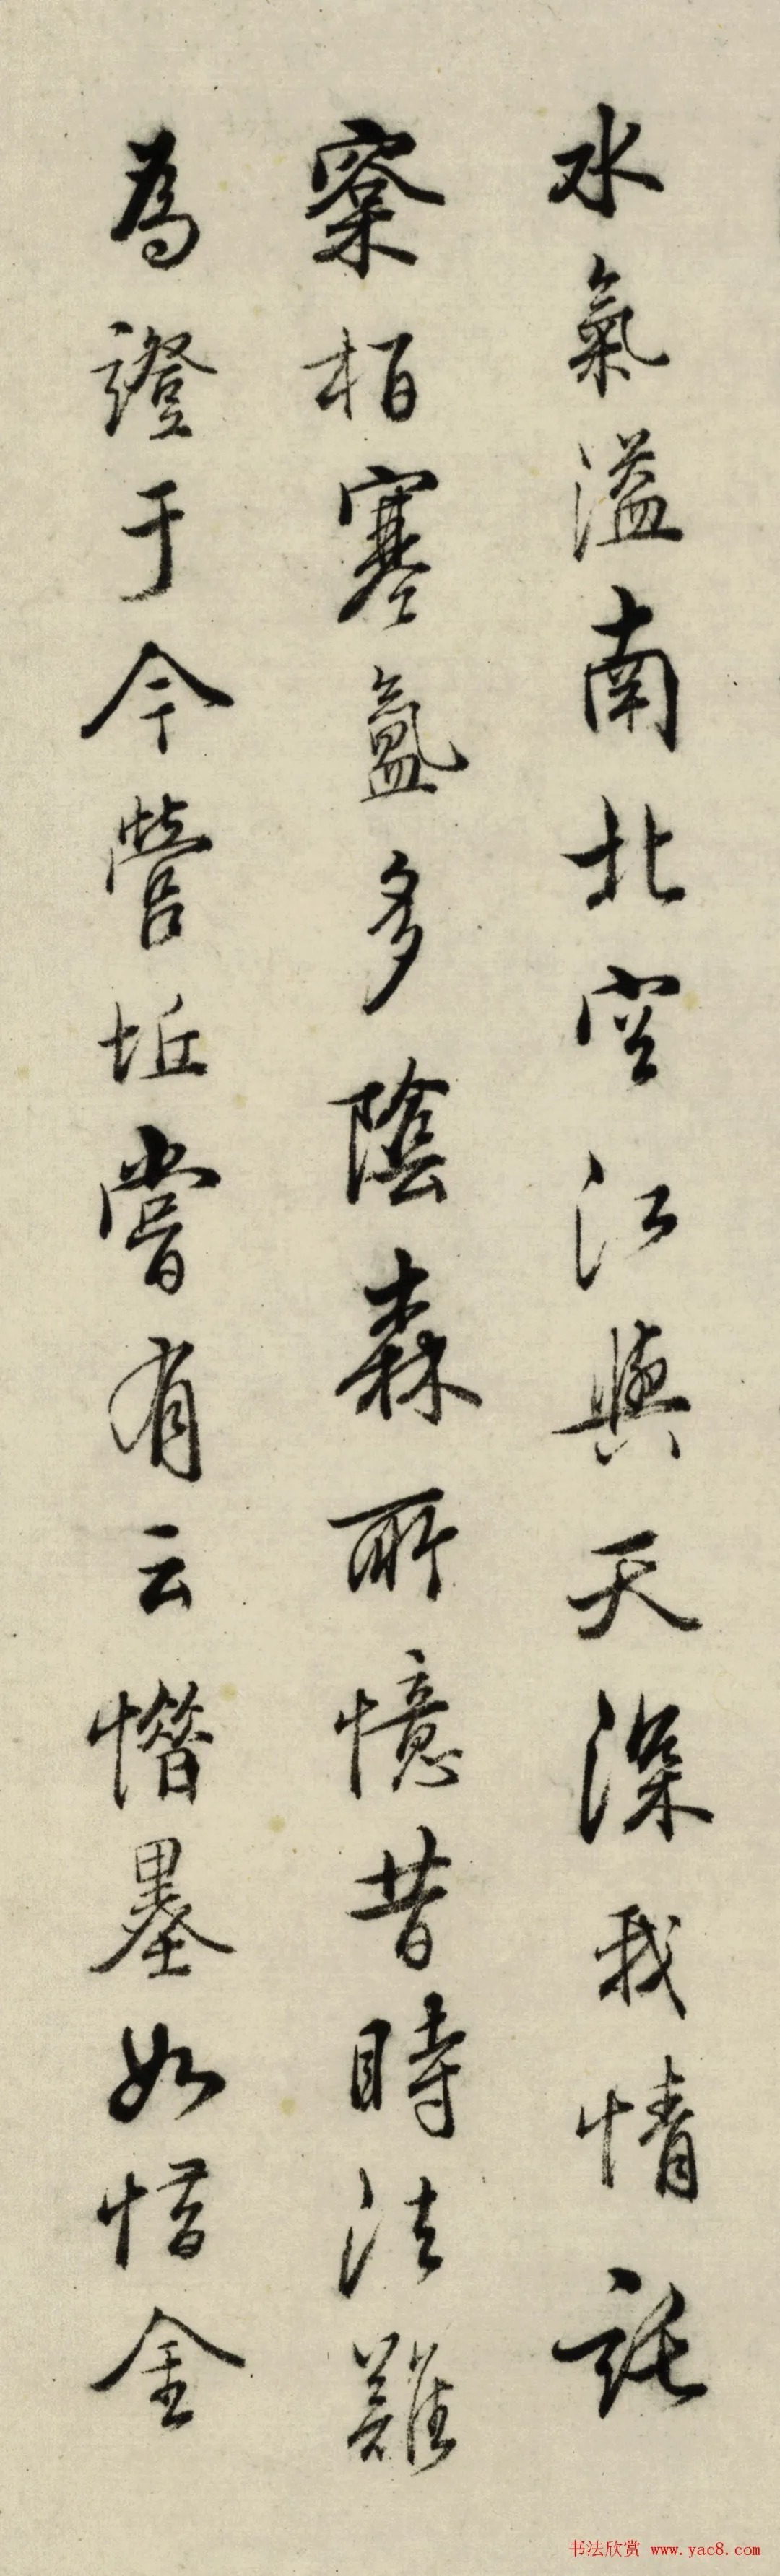 水氣溢南北空江與天深我情託
柏寒氳多陰森所憶昔時法難
為證于今營坵嘗有云惜墨如惜金
书法欣赏 www.yac8.com